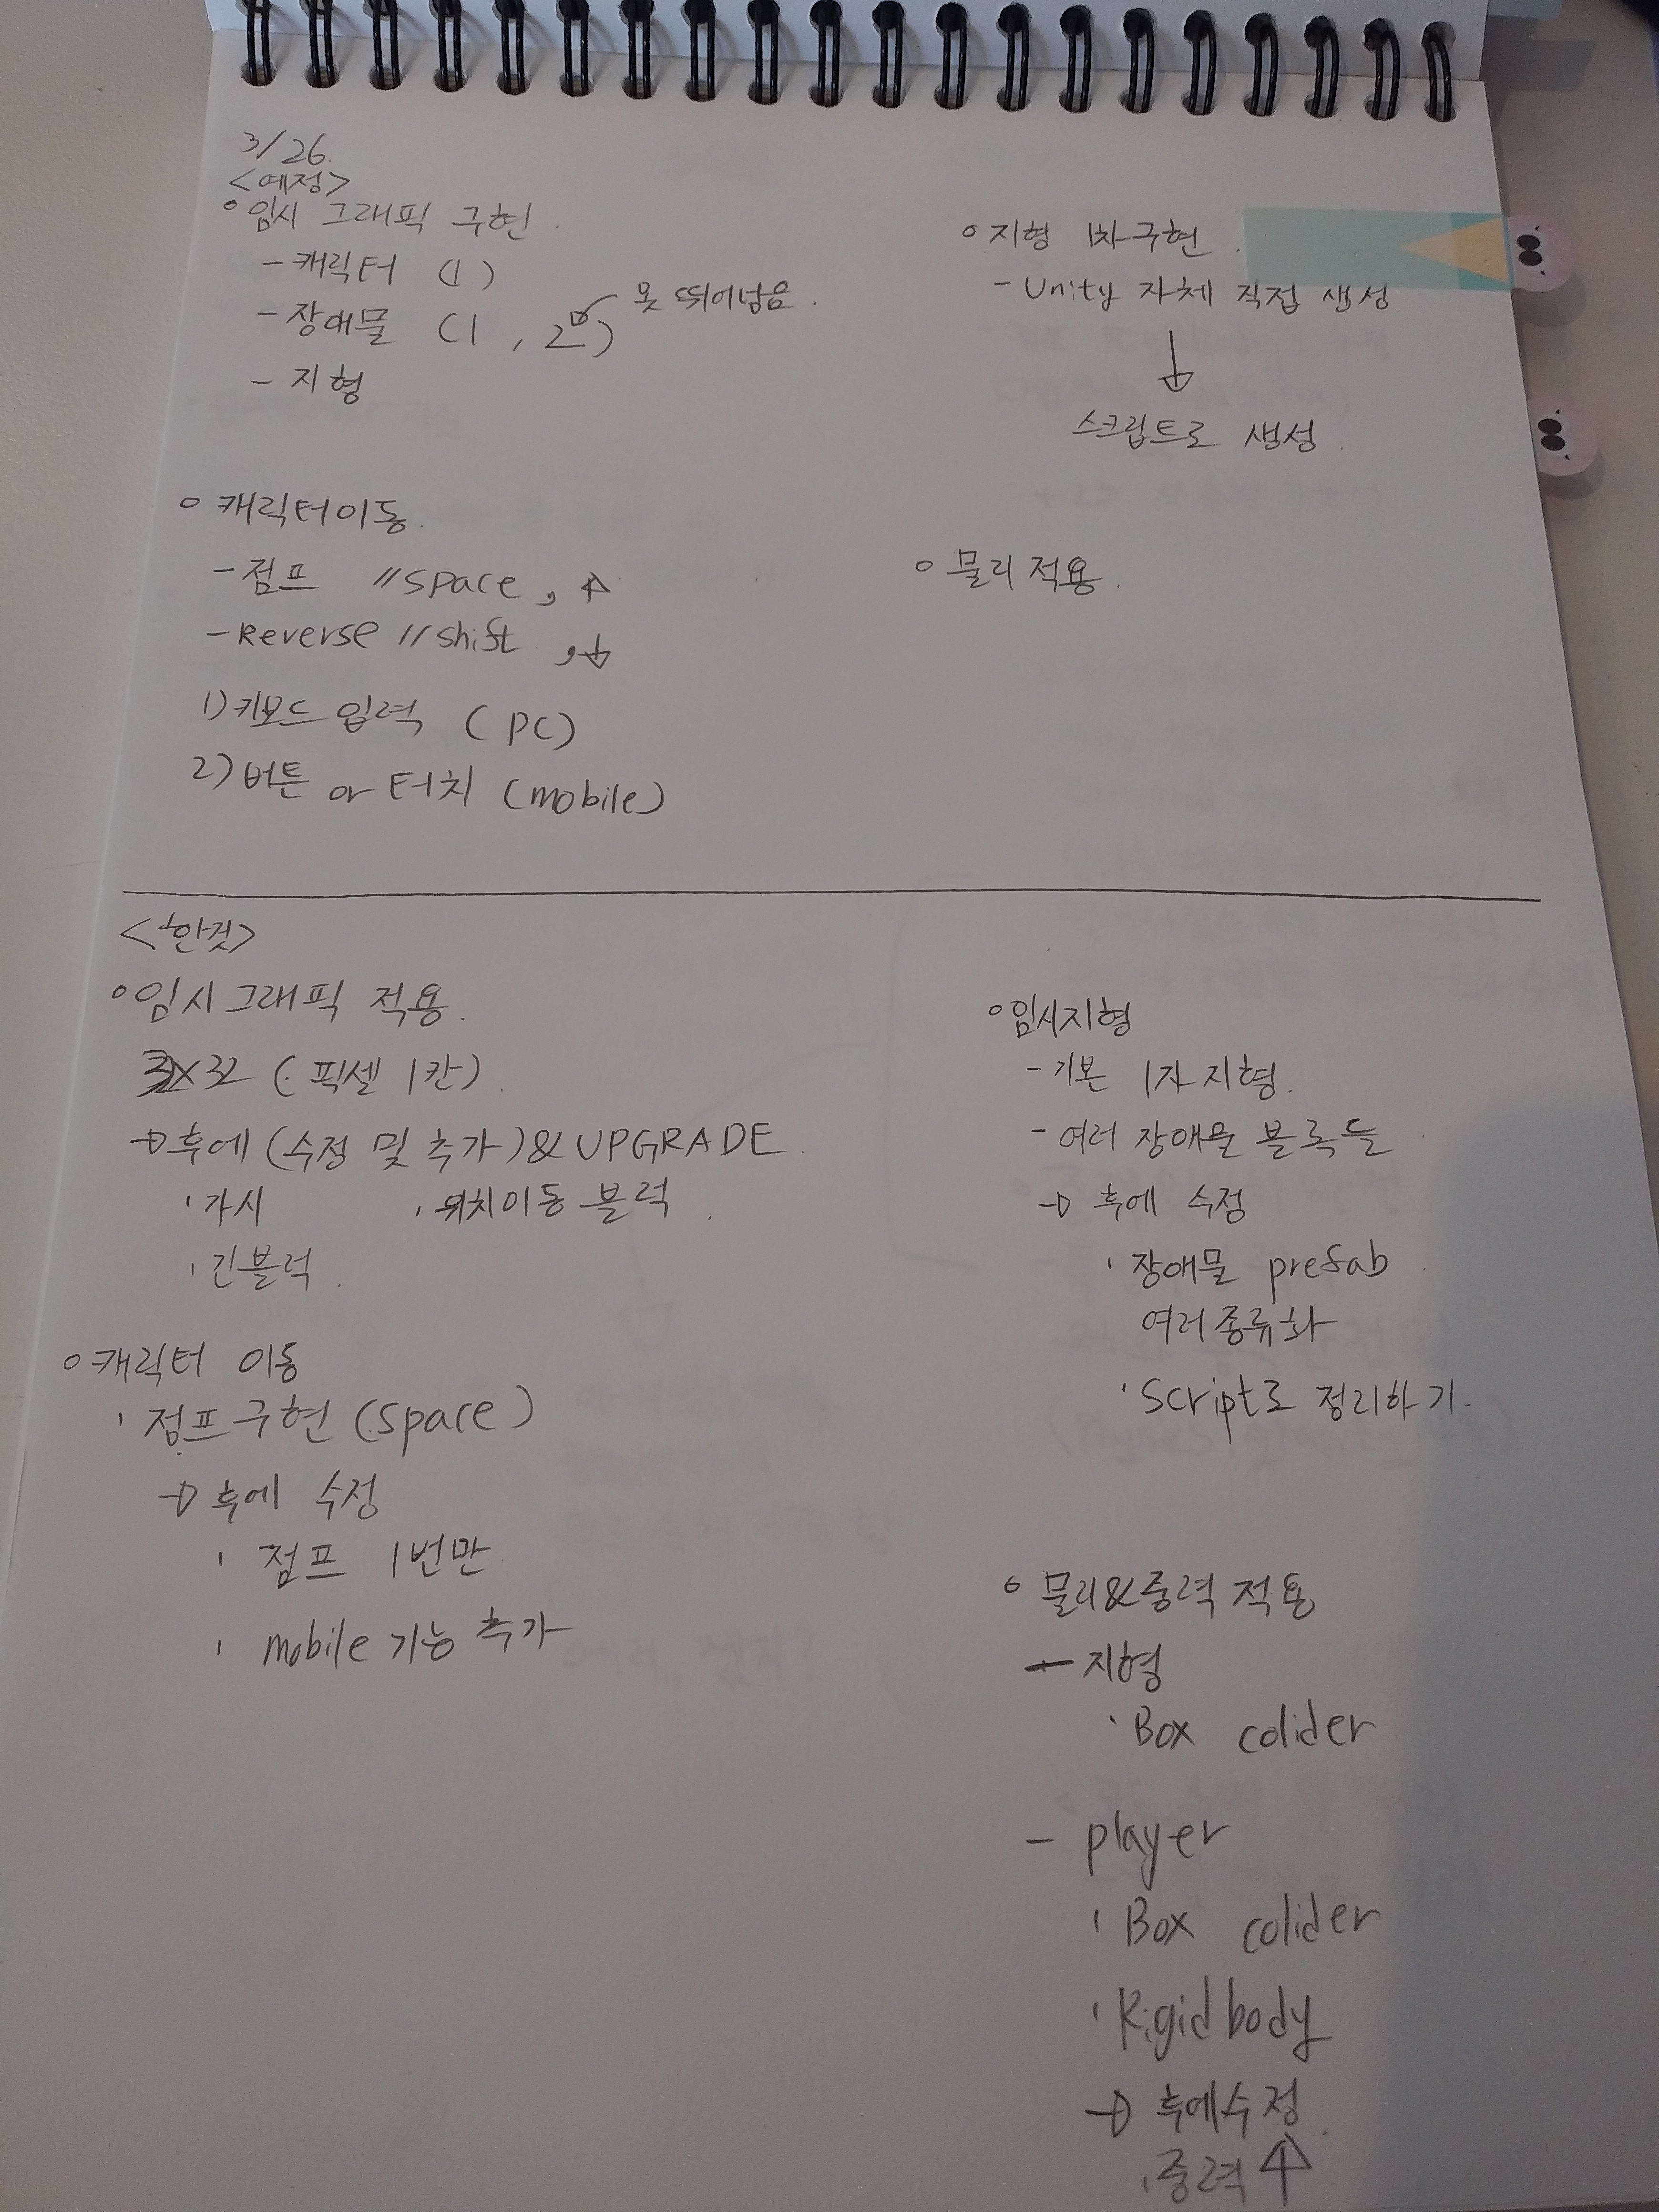 3/26.
<예정>
◦ 임시 그래픽 구현.
- 캐릭터 (1)
- 장애물 (1, 2) 못 뛰어넘음.
- 지형
◦ 캐릭터이동.
- 점프 //space, ↑
- Reverse //shift, ↓
1) 키보드 입력 (PC)
2) 버튼 or 터치 (mobile)
◦ 지형 1차구현.
- Unity 자체 직접 생성
↓
스크립트로 생성.
◦ 물리 적용.
<한것>
◦ 임시 그래픽 적용.
32x32 (픽셀 1칸)
→ 후에 (수정 및 추가) & UPGRADE.
· 가시 · 위치이동 블럭.
· 긴블럭.
◦ 캐릭터 이동
· 점프 구현 (space)
→ 후에 수정
· 점프 1번만
· mobile 기능 추가
◦ 임시지형
- 기본 1자 지형.
- 여러 장애물 블록들.
→ 후에 수정
· 장애물 prefab.
여러 종류화
· Script로 정리하기.
◦ 물리&중력 적용
- 지형
· Box colider
- player
· Box colider
· Rigid body
→ 후에수정.
· 중력 ↑